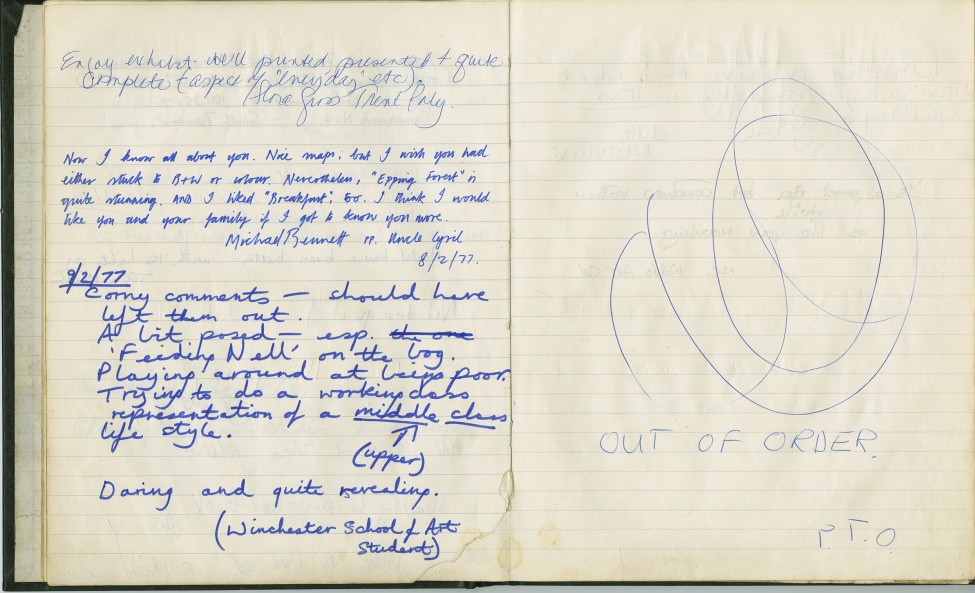 Enjoy exhibit. Well printed presented + quite
complete (aspect of "everyday" etc).
Trent Poly.
Now I know all about you. Nice maps, but I wish you had
either stuck to B+W or colour. Nevertheless, "Epping Forest" is
quite stunning. AND I liked "Breakfast", too. I think I would
like you and your family if I got to know you more.
Michael Bennett pp. Uncle Cyril
8/2/77.
9/2/77
Corny comments — should have
left them out.
A bit posed — esp. the one
'Feeding Nell' on the bog.
Playing around at being poor.
Trying to do a working class
representation of a middle class
life style.
(upper)
Daring and quite revealing.
(Winchester School of Art
Student)
OUT OF ORDER.
P.T.O.